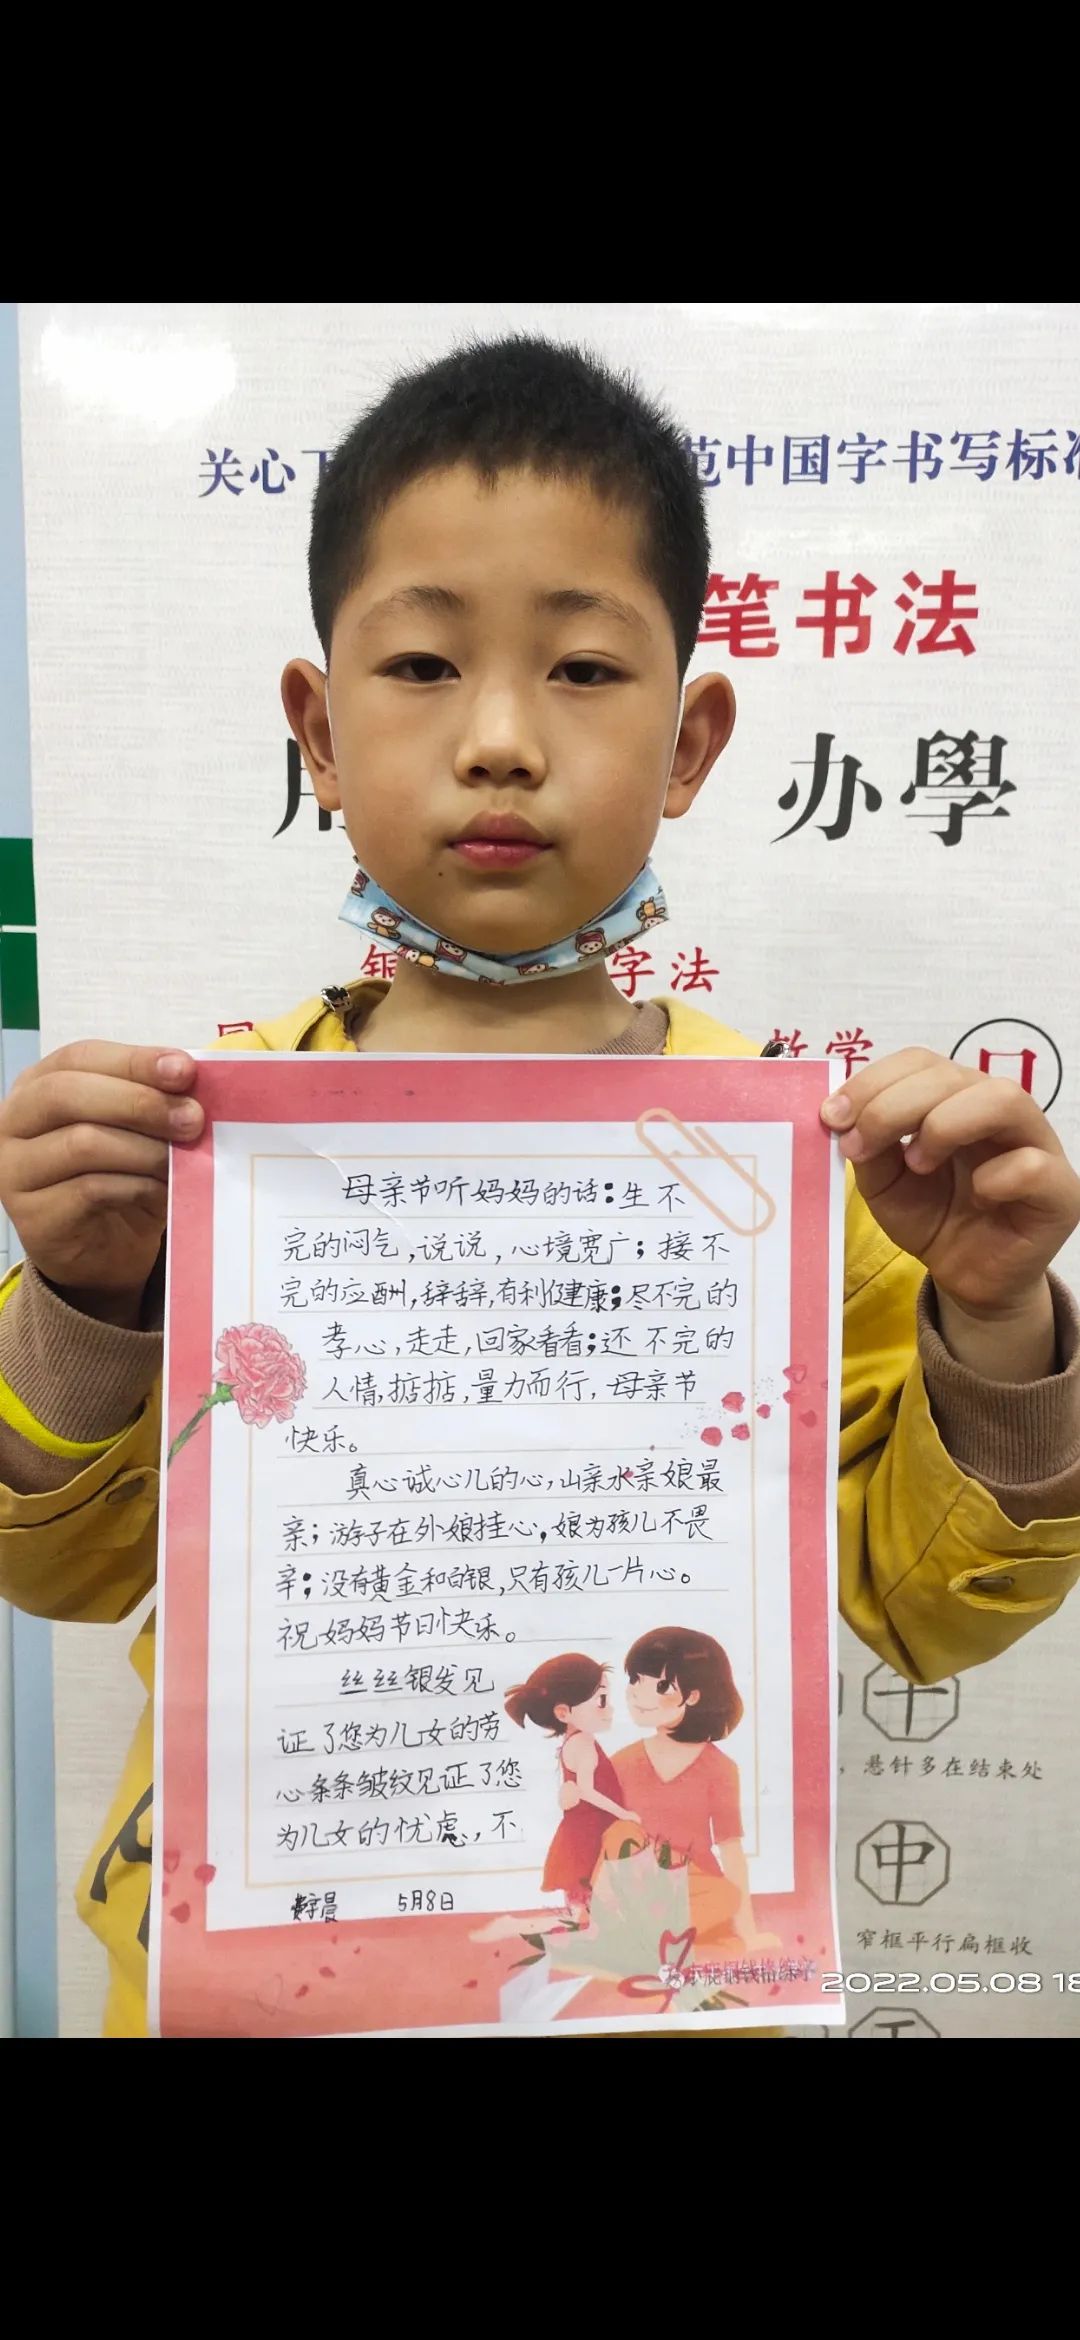 关心下
范中国字书写标准
笔书法
用
办學
字法
教学
口
母亲节听妈妈的话：生不
完的闷气，说说，心境宽广；接不
完的应酬，辞辞，有利健康；尽不完的
孝心，走走，回家看看；还不完的
人情，掂掂，量力而行，母亲节
快乐。
真心诚心儿的心，山亲水亲娘最
亲；游子在外娘挂心，娘为孩儿不畏
辛；没有黄金和白银，只有孩儿一片心。
祝妈妈节日快乐。
丝丝银发见
证了您为儿女的劳
心条条皱纹见证了您
为儿女的忧虑，不
5月8日
干
，悬针多在结束处
中
窄框平行扁框收
2022.05.08 18